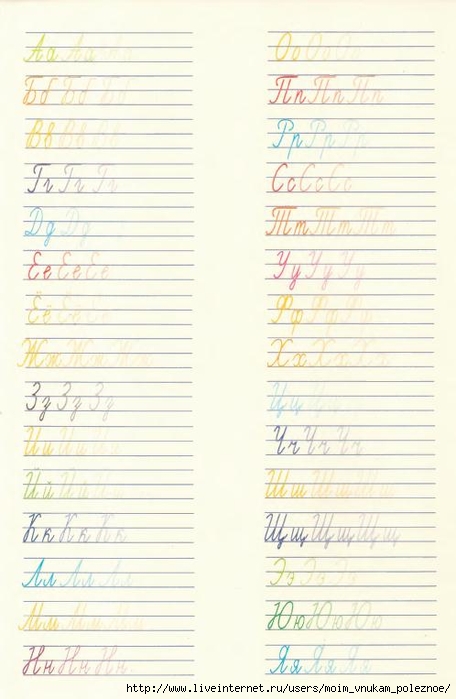 Аа Аа Аа
Бб Бб Бб
Вв Вв Вв
Гг Гг Гг
Дд Дд
Ее Ее Ее
Ёё Ёё Ёё
Жж Жж Жж
Зз Зз Зз
Ии Ии Ии
Йй Йй Йй
Кк Кк Кк
Лл Лл Лл
Мм Мм Мм
Нн Нн Нн
Оо Оо Оо
Пп Пп Пп
Рр Рр Рр
Сс Сс Сс
Тт Тт Тт
Уу Уу Уу
Фф Фф Фф
Хх Хх Хх
Цц Цц
Чч Чч Чч
Шш Шш Шш
Щщ Щщ Щщ
Ээ Ээ Ээ
Юю Юю Юю
Яя Яя Яя
http://www.liveinternet.ru/users/moim_vnukam_poleznoe/